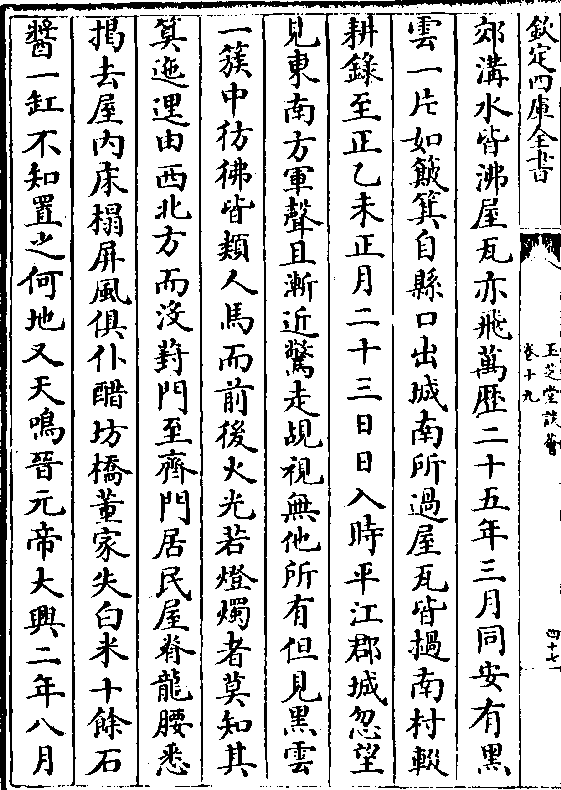 欽定四庫全書
玉芝堂談薈
卷十九
四十七
郊溝水皆沸屋瓦亦飛萬歷二十五年三月同安有黑
雲一片如簸箕自縣口出城南所過屋瓦皆揭南村輟
耕錄至正乙未正月二十三日日入時平江郡城忽望
見東南方軍聲且漸近驚走覘視無他所有但見黑雲
一簇中彷彿皆類人馬而前後火光若燈燭者莫知其
筭迤邐由西北方而沒葑門至齊門居民屋脊龍腰悉
揭去屋内床榻屏風俱仆醋坊橋董家失白米十餘石
醬一缸不知置之何地又天鳴晉元帝大興二年八月